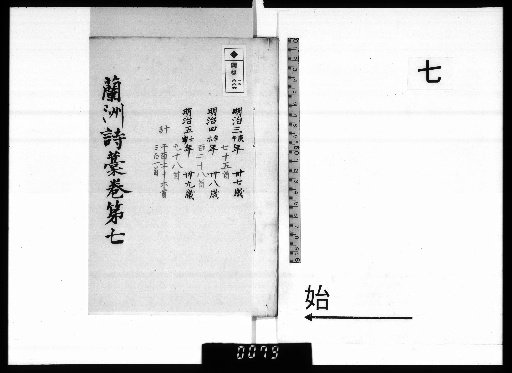 七
始
明治三庚午年 卅七歳
七十五首
明治四辛未年 卅八歳
百二十八首
明治五壬申年 卅九歳
九十八首
計
蘭洲詩藁巻第七
0079